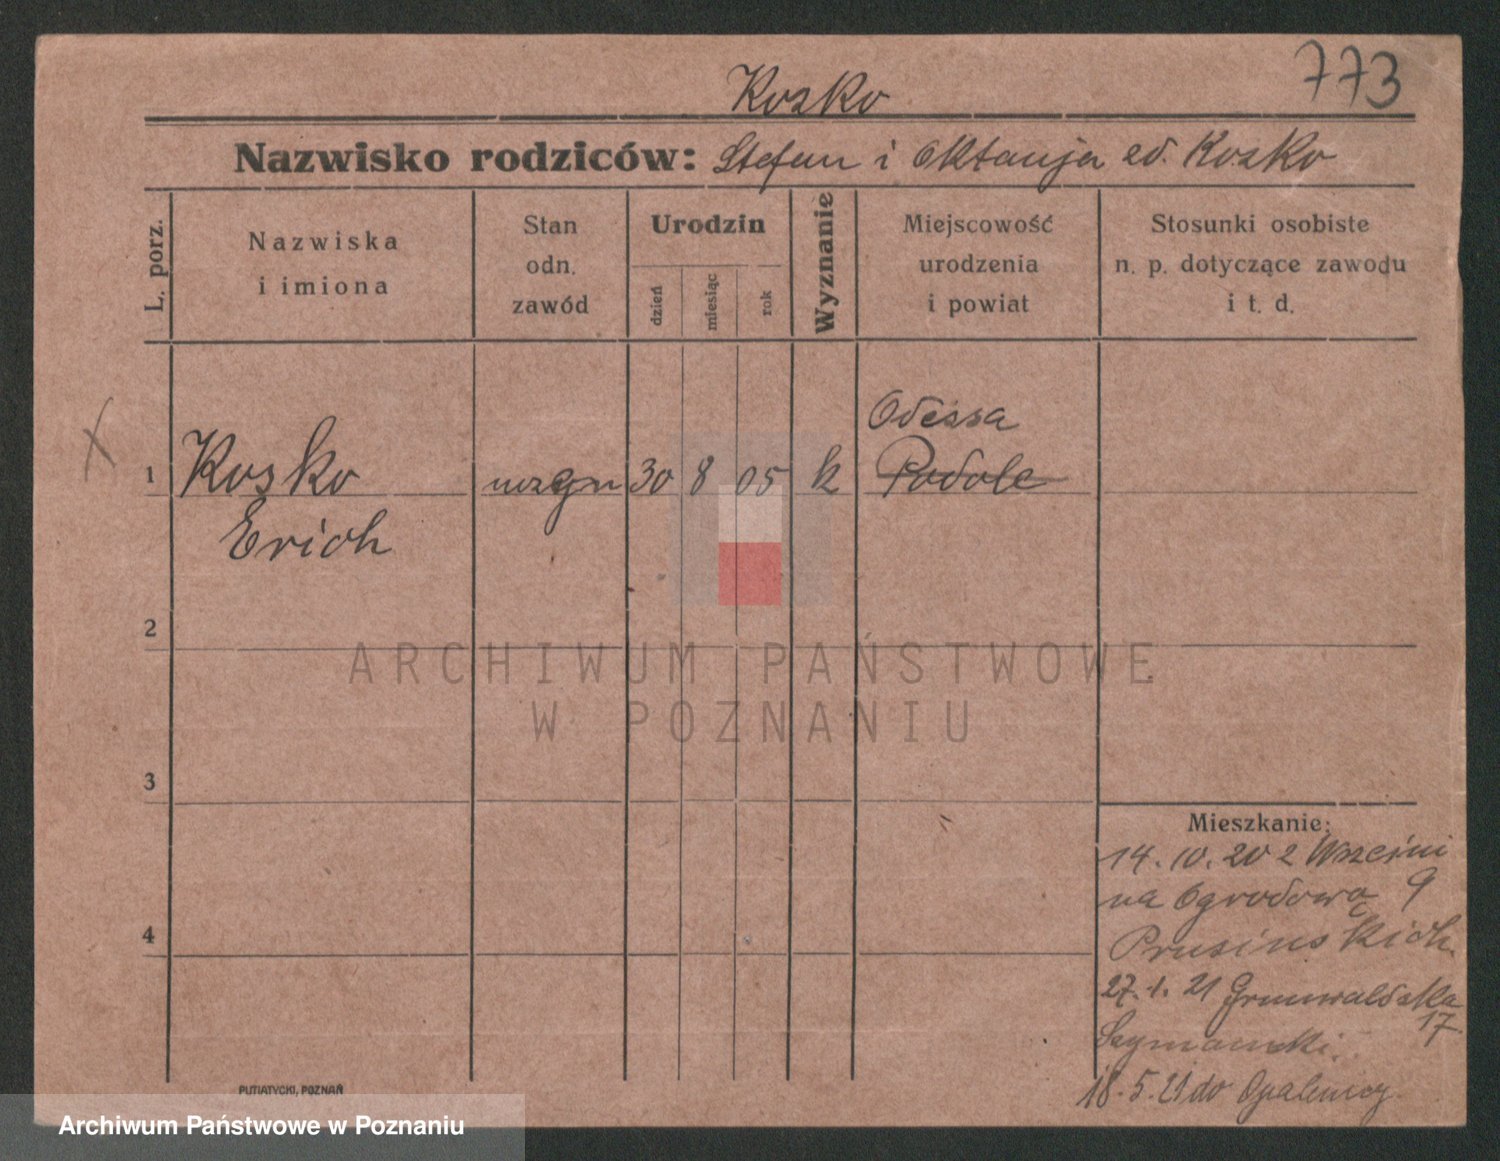 773
Kozko
Nazwisko rodziców: Stefan i Oktawja ed. Kozko
L. porz.
Nazwiska
i imiona
Stan
odn.
zawód
Urodzin
dzień
miesiąc
rok
Wyznanie
Miejscowość
urodzenia
i powiat
Stosunki osobiste
n. p. dotyczące zawodu
i t. d.
Odessa
1 Kosko 30 8 05 k Podole
Erich
2
ARCHIWUM PAŃSTWOWE
W POZNANIU
3
Mieszkanie:
14. 10. 20 z Wrześni
na Ogrodową 9
4
Prusinskich
27. 1. 21 Grunwaldzka
17
Szymanski
18. 5. 21 do Opalenicy
PUTIATYCKI, POZNAŃ
Archiwum Państwowe w Poznaniu